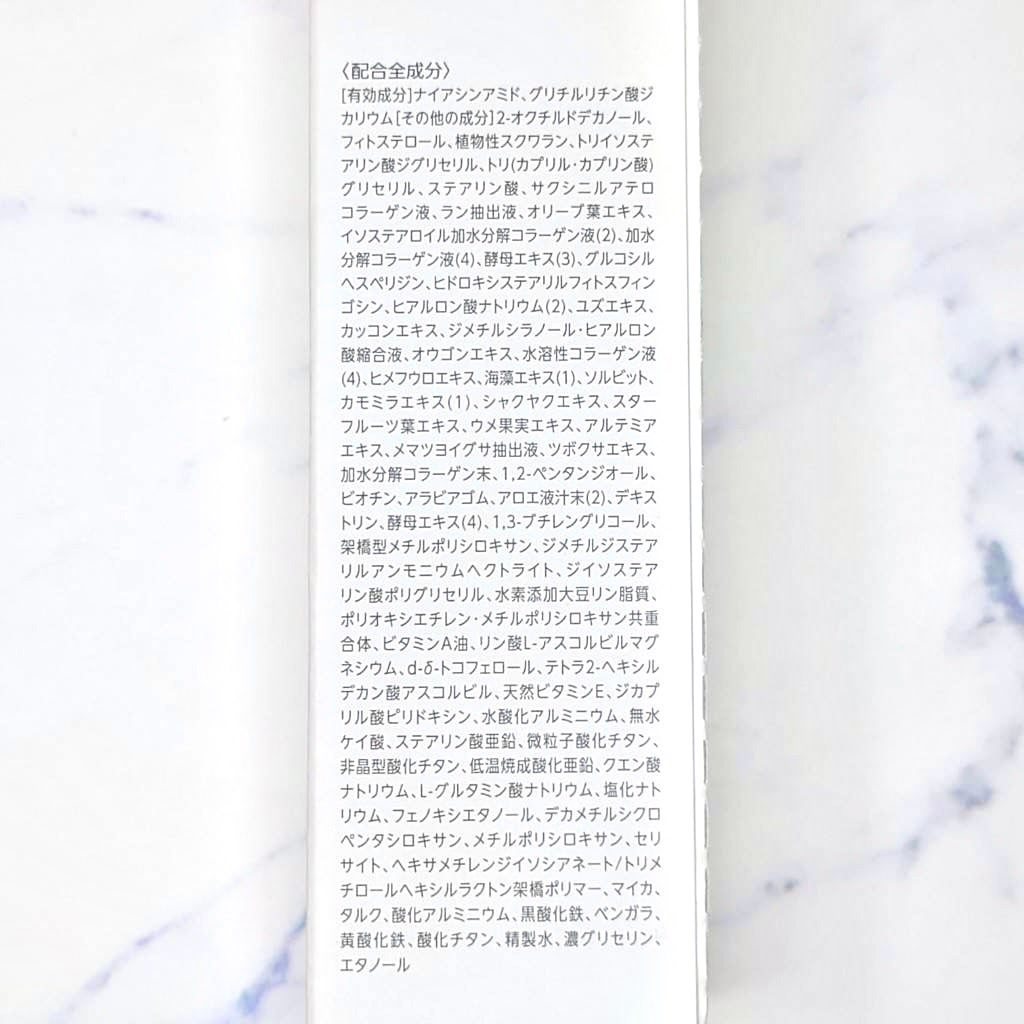 〈配合全成分〉
[有効成分]ナイアシンアミド、グリチルリチン酸ジ
カリウム[その他の成分]2-オクチルドデカノール、
フィトステロール、植物性スクワラン、トリイソステ
アリン酸ジグリセリル、トリ(カプリル・カプリン酸)
グリセリル、ステアリン酸、サクシニルアテロ
コラーゲン液、ラン抽出液、オリーブ葉エキス、
イソステアロイル加水分解コラーゲン液(2)、加水
分解コラーゲン液(4)、酵母エキス(3)、グルコシル
ヘスペリジン、ヒドロキシステアリルフィトスフィン
ゴシン、ヒアルロン酸ナトリウム(2)、ユズエキス、
カッコンエキス、ジメチルシラノール・ヒアルロン
酸縮合液、オウゴンエキス、水溶性コラーゲン液
(4)、ヒメフウロエキス、海藻エキス(1)、ソルビット、
カモミラエキス(1)、シャクヤクエキス、スター
フルーツ葉エキス、ウメ果実エキス、アルテミア
エキス、メマツヨイグサ抽出液、ツボクサエキス、
加水分解コラーゲン末、1,2-ペンタンジオール、
ビオチン、アラビアゴム、アロエ液汁末(2)、デキス
トリン、酵母エキス(4)、1,3-ブチレングリコール、
架橋型メチルポリシロキサン、ジメチルジステア
リルアンモニウムヘクトライト、ジイソステア
リン酸ポリグリセリル、水素添加大豆リン脂質、
ポリオキシエチレン・メチルポリシロキサン共重
合体、ビタミンA油、リン酸L-アスコルビルマグ
ネシウム、d-δ-トコフェロール、テトラ2-ヘキシル
デカン酸アスコルビル、天然ビタミンE、ジカプ
リル酸ピリドキシン、水酸化アルミニウム、無水
ケイ酸、ステアリン酸亜鉛、微粒子酸化チタン、
非晶型酸化チタン、低温焼成酸化亜鉛、クエン酸
ナトリウム、L-グルタミン酸ナトリウム、塩化ナト
リウム、フェノキシエタノール、デカメチルシクロ
ペンタシロキサン、メチルポリシロキサン、セリ
サイト、ヘキサメチレンジイソシアネート/トリメ
チロールヘキシルラクトン架橋ポリマー、マイカ、
タルク、酸化アルミニウム、黒酸化鉄、ベンガラ、
黄酸化鉄、酸化チタン、精製水、濃グリセリン、
エタノール